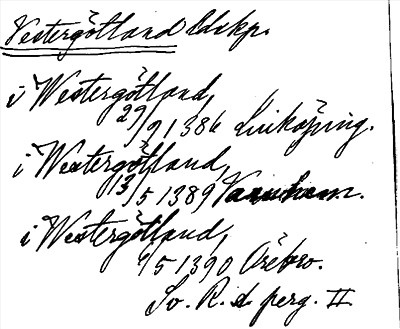 Vestergötland Lbskp.
i Westergötland,
29/9 1386 Linköping.
i Westergötland,
13/5 1389 Varnhem.
i Westergötland,
6/5 1390 Örebro.
Sv. R. A perg. II